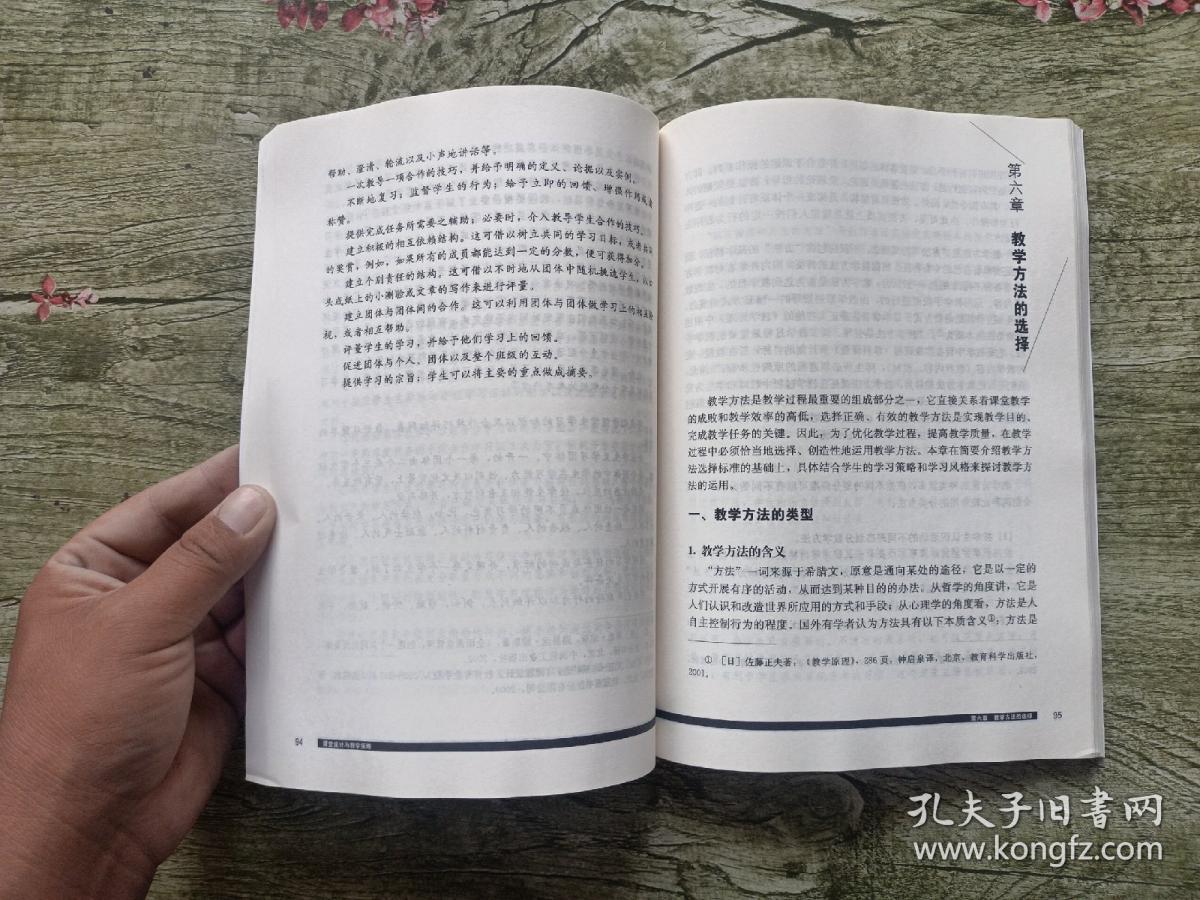 帮助、澄清、轮流以及小声地讲话等。
一次教导一项合作的技巧，并给予明确的定义、论据以及实例。
不断地复习；监督学生的行为；给予立即的回馈、增强作用或者
称赞。
提供完成任务所需要之辅助；必要时，介入教导学生合作的技巧。
建立积极的相互依赖结构。这可借以树立共同的学习目标，或者共
的奖赏，例如，如果所有的成员都能达到一定的分数，便可获得加分。
建立个别责任的结构。这可借以不时地从团体中随机挑选学生，以口
头或纸上的小测验或文章的写作来进行评量。
建立团体与团体间的合作。这可以利用团体与团体做学习上的相互
视，或者相互帮助。
评量学生的学习，并给予他们学习上的回馈。
促进团体与个人、团体以及整个班级的互动。
提供学习的宗旨：学生可以将主要的重点做成摘要。
94 课堂设计与教学策略
第六章 教学方法的选择
教学方法是教学过程最重要的组成部分之一，它直接关系着课堂教学
的成败和教学效率的高低，选择正确、有效的教学方法是实现教学目的、
完成教学任务的关键。因此，为了优化教学过程，提高教学质量，在教学
过程中必须恰当地选择、创造性地运用教学方法。本章在简要介绍教学方
法选择标准的基础上，具体结合学生的学习策略和学习风格来探讨教学方
法的运用。
一、教学方法的类型
1. 教学方法的含义
“方法”一词来源于希腊文，原意是通向某处的途径，它是以一定的
方式开展有序的活动，从而达到某种目的的办法。从哲学的角度讲，它是
人们认识和改造世界所应用的方式和手段；从心理学的角度看，方法是人
自主控制行为的程度。国外有学者认为方法具有以下本质含义①：方法是
① ［日］佐藤正夫著，《教学原理》，286 页，钟启泉译，北京，教育科学出版社，
2001。
第六章 教学方法的选择 95
孔夫子旧書网
www.kongfz.com